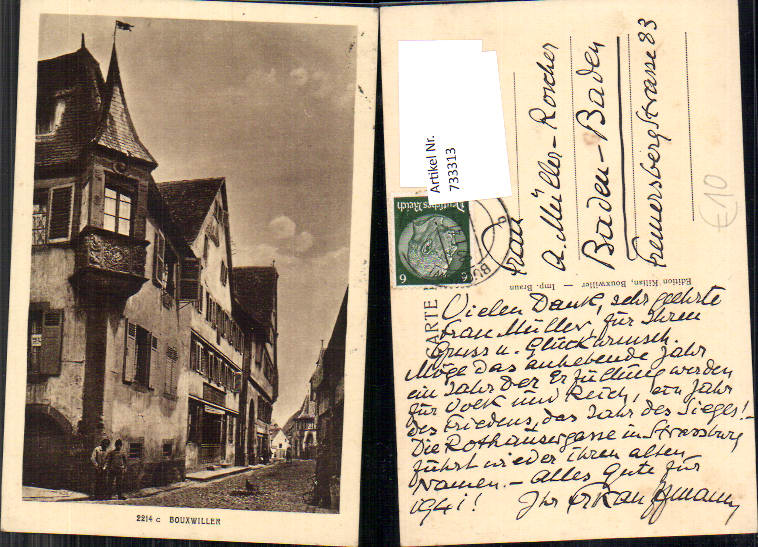 2214 c BOUXWILLER
Artikel Nr.
733313
Deutsches Reich
6 6
BU
CARTE
Edition Kilian, Bouxwiller — Imp. Braun
Frau
A. Müller-Roscher
Baden-Baden
Fremersbergstrasse 83
€10
Vielen Dank, sehr geehrte
Frau Müller, für Ihren
Gruss u. Glückwunsch.
Möge das anhebende Jahr
ein Jahr der Erfüllung werden
für Volk und Reich, ein Jahr
des Friedens, das Jahr des Sieges! –
Die Rothäusergasse in Strassburg
führt wieder ihren alten
Namen. – Alles Gute für
1941! Ihr